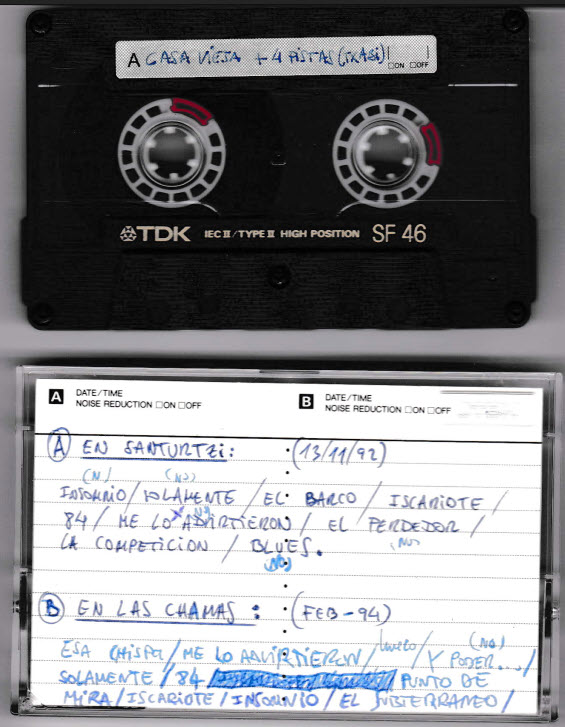 A CASA VIEJA + 4 PISTAS (TXASI)
□ON □OFF
TDK IEC II/TYPE II HIGH POSITION SF 46
A DATE/TIME
NOISE REDUCTION □ON □OFF
B DATE/TIME
NOISE REDUCTION □ON □OFF
A EN SANTURTZI: (13/11/92)
(N) (NO)
INSOMNIO/SOLAMENTE / EL BARCO / ISCARIOTE/
NO
84/ ME LO ADVIRTIERON / EL PERDEDOR /
(NO)
LA COMPETICION / BLUES.
(NO)
B EN LAS CHAMAS: (FEB-94)
(NO)
ESA CHISPA/ME LO ADVIRTIERON/ /Y PODER.../
SOLAMENTE /84 PUNTO DE
MIRA/ISCARIOTE/INSOMNIO/EL SUBTERRANEO/